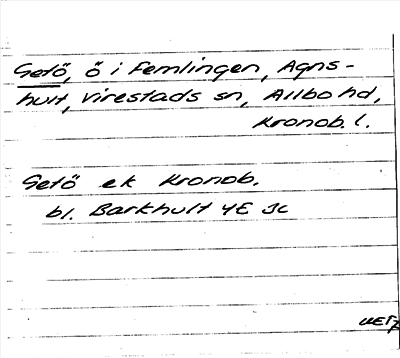 Getö, ö i Femlingen, Agns-
hult, Virestads sn, Allbo hd,
Kronob. l.
Getö ek Kronob.
bl. Barkhult 4E Jc